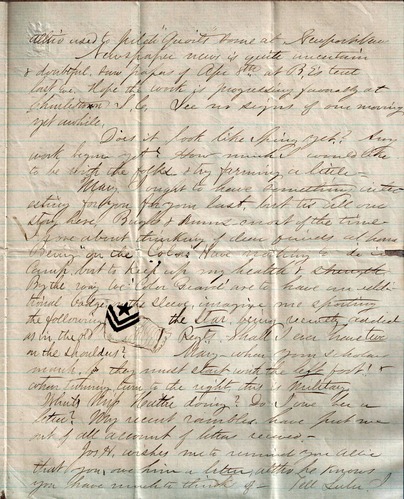 used to pitch Quoits some at Newport
Newspaper news is quite uncertain
& doubtful. Saw papers of Apr 8th at tent
last Hope the work is progressing favorably at
Charleston S. Co. See no signs of our moving
yet awhile.
Does it look like Spring yet? Any
work begun yet? How much I would like
to be with the folks & try farming a little—
Mary I ought to have something inter
esting for you, for your last, but tis
story here, Bugle & Drums most of the time
about thinking of dear friends
on the Have nothing to do in
Camp, but to keep up my health & strength
By the way our Color Guard are to have an addi
tional badge on the sleeve, imagine me sporting
the following the Star, being recently added
as in the old Regts. Shall I ever have two
on the Shoulders? Mary when your scholars
march, they must start with the left foot! &
when turning turn to the right, this is Military
What's Miss doing? Do I owe her a
letter? My recent rambles have put me
out of all account of letters received.—
Jos H. wishes me to remind you Allie
that you owe him a letter, altho he knows
you have much to think of— Tell